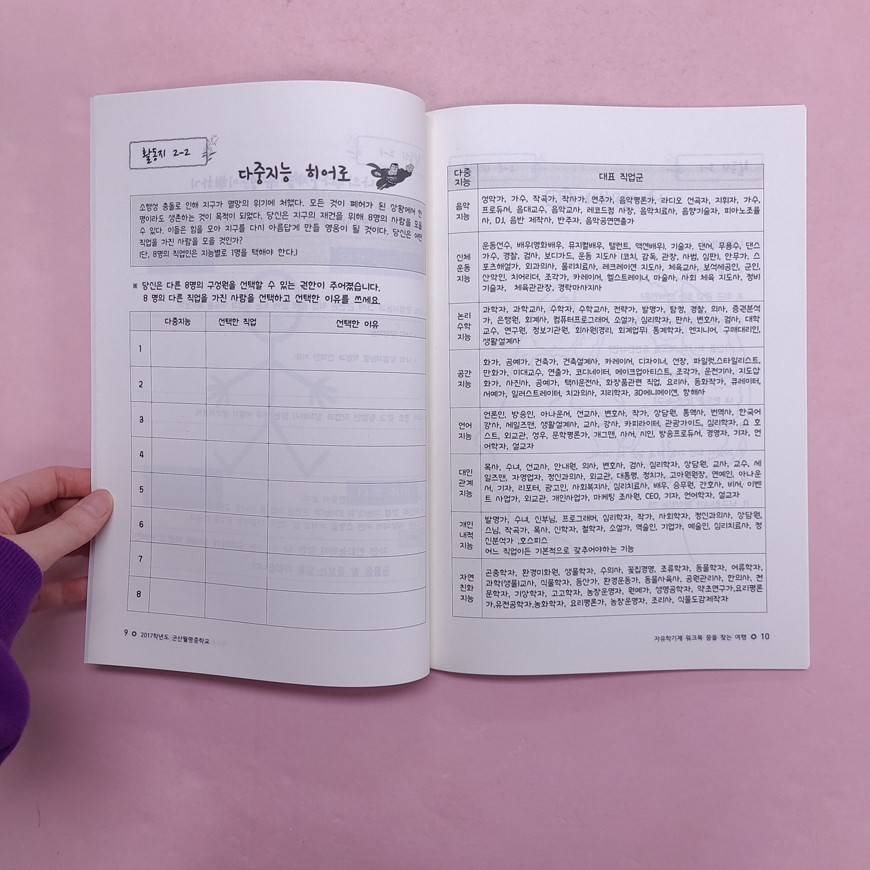 활동지 2-2
다중지능 히어로
소행성 충돌로 인해 지구가 멸망의 위기에 처했다. 모든 것이 폐허가 된 상황에서 한
명이라도 생존하는 것이 목적이 되었다. 당신은 지구의 재건을 위해 8명의 사람을 모을
수 있다. 이들은 힘을 모아 지구를 다시 아름답게 만들 영웅이 될 것이다. 당신은 어떤
직업을 가진 사람을 모을 것인가?
(단, 8명의 직업인은 지능별로 1명을 택해야 한다.)
※ 당신은 다른 8명의 구성원을 선택할 수 있는 권한이 주어졌습니다.
8 명의 다른 직업을 가진 사람을 선택하고 선택한 이유를 쓰세요.
다중지능 선택한 직업 선택한 이유
1
2
3
4
5
6
7
8
9 2017학년도 군산월명중학교
다중 지능 대표 직업군
음악 지능
성악가, 가수, 작곡가, 작사가, 연주가, 음악평론가, 라디오 선곡자, 지휘자, 가수,
프로듀서, 음대교수, 음악교사, 레코드점 사장, 음악치료사, 음향기술자, 피아노조율
사, DJ, 음반 제작사, 반주자, 음악공연연출가
신체 운동 지능
운동선수, 배우(영화배우, 뮤지컬배우, 탤런트, 액션배우), 기술자, 댄서, 무용수, 댄스
가수, 경찰, 검사, 보디가드, 운동 지도사 (코치, 감독, 관장, 사범, 심판), 안무가, 스
포츠해설가, 외과의사, 물리치료사, 레크레이션 지도사, 체육교사, 보석세공인, 군인,
산악인, 치어리더, 조각가, 카레이서, 헬스트레이너, 마술사, 사회 체육 지도사, 정비
기술자, 체육관관장, 경락마사지사
논리 수학 지능
과학자, 과학교사, 수학자, 수학교사, 전략가, 발명가, 탐정, 경찰, 의사, 증권분석
가, 은행원, 회계사, 컴퓨터프로그래머, 소설가, 심리학자, 판사, 변호사, 검사, 대학
교수, 연구원, 정보기관원, 회사원(경리, 회계업무) 통계학자, 엔지니어, 구매대리인,
생활설계사
공간 지능
화가, 공예가, 건축가, 건축설계사, 카레이서, 디자이너, 선장, 파일럿,스타일리스트,
만화가, 미대교수, 연출가, 코디네이터, 메이크업아티스트, 조각가, 운전기사, 지도압
화가, 사진사, 공예가, 택시운전사, 화장품관련 직업, 요리사, 동화작가, 큐레이터,
서예가, 일러스트레이터, 치과의사, 지리학자, 3D에니메이션, 항해사
언어 지능
언론인, 방송인, 아나운서, 선교사, 변호사, 작가, 상담원, 통역사, 번역사, 한국어
강사, 세일즈맨, 생활설계사, 교사, 강사, 카피라이터, 관광가이드, 심리학자, 쇼 호
스트, 외교관, 성우, 문학평론가, 개그맨, 사서, 시인, 방송프로듀서, 경영자, 기자, 언
어학자, 설교자
대인 관계 지능
목사, 수녀, 선교사, 안내원, 의사, 변호사, 검사, 심리학자, 상담원, 교사, 교수, 세
일즈맨, 자영업자, 정신과의사, 외교관, 대통령, 정치가, 고아원원장, 연예인, 아나운
서, 기자, 리포터, 광고인, 사회복지사, 심리치료사, 배우, 승무원, 간호사, 비서, 이벤
트 사업가, 외교관, 개인사업가, 마케팅 조사원, CEO, 기자, 언어학자, 설교자
개인 내적 지능
발명가, 수녀, 신부님, 프로그래머, 심리학자, 작가, 사회학자, 정신과의사, 상담원,
스님, 작곡가, 목사, 신학자, 철학자, 소설가, 역술인, 기업가, 예술인, 심리치료사, 정
신분석가 ,호스피스
어느 직업이든 기본적으로 갖추어야하는 기능
자연 친화 지능
곤충학자, 환경미화원, 생물학자, 수의사, 꽃집경영, 조류학자, 동물학자, 어류학자,
과학(생물)교사, 식물학자, 등산가, 환경운동가, 동물사육사, 공원관리사, 한의사, 천
문학자, 기상학자, 고고학자, 농장운영자, 원예가, 생명공학자, 약초연구가,요리평론
가,유전공학자,농화학자, 요리평론가, 농장운영자, 조리사, 식물도감제작자
자유학기제 워크북 꿈을 찾는 여행 10